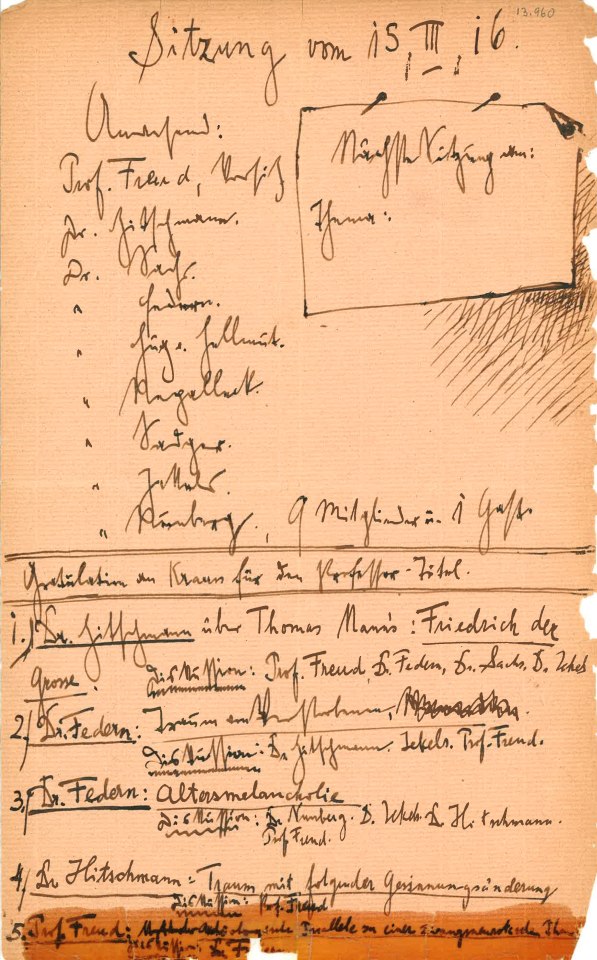 13.960
Sitzung vom 15, III, 16.
Anwesend:
Prof. Freud, Vorsitz
Dr. Hitschmann.
Dr. Sachs.
" Federn.
" Hug v. Hellmut.
"
" Sadger.
" Jekels.
" Nunberg, 9 Mitglieder u. 1 Gast.
Nächste Sitzung am:
Thema:
Gratulation an Kraus für den Professor-Titel.
1.) Dr. Hitschmann über Thomas Mann's: Friedrich der
Grosse.
Diskussion: Prof. Freud, Dr. Federn, Dr. Sachs, Dr. Jekels
2.) Dr. Federn: Traum vom Verstorbenen,
Diskussion: Dr. Hitschmann. Jekels. Prof. Freud.
3.) Dr. Federn: Altersmelancholie
Diskussion: Dr. Nunberg. D. Jekels. Dr. Hitschmann.
Prof. Freud.
4.) Dr Hitschmann: Traum mit folgender Gesinnungsänderung
Diskussion: Prof. Freud
5. Prof. Freud: Parallele zu einer zwangsneurotischen
Diskussion: Dr. Federn